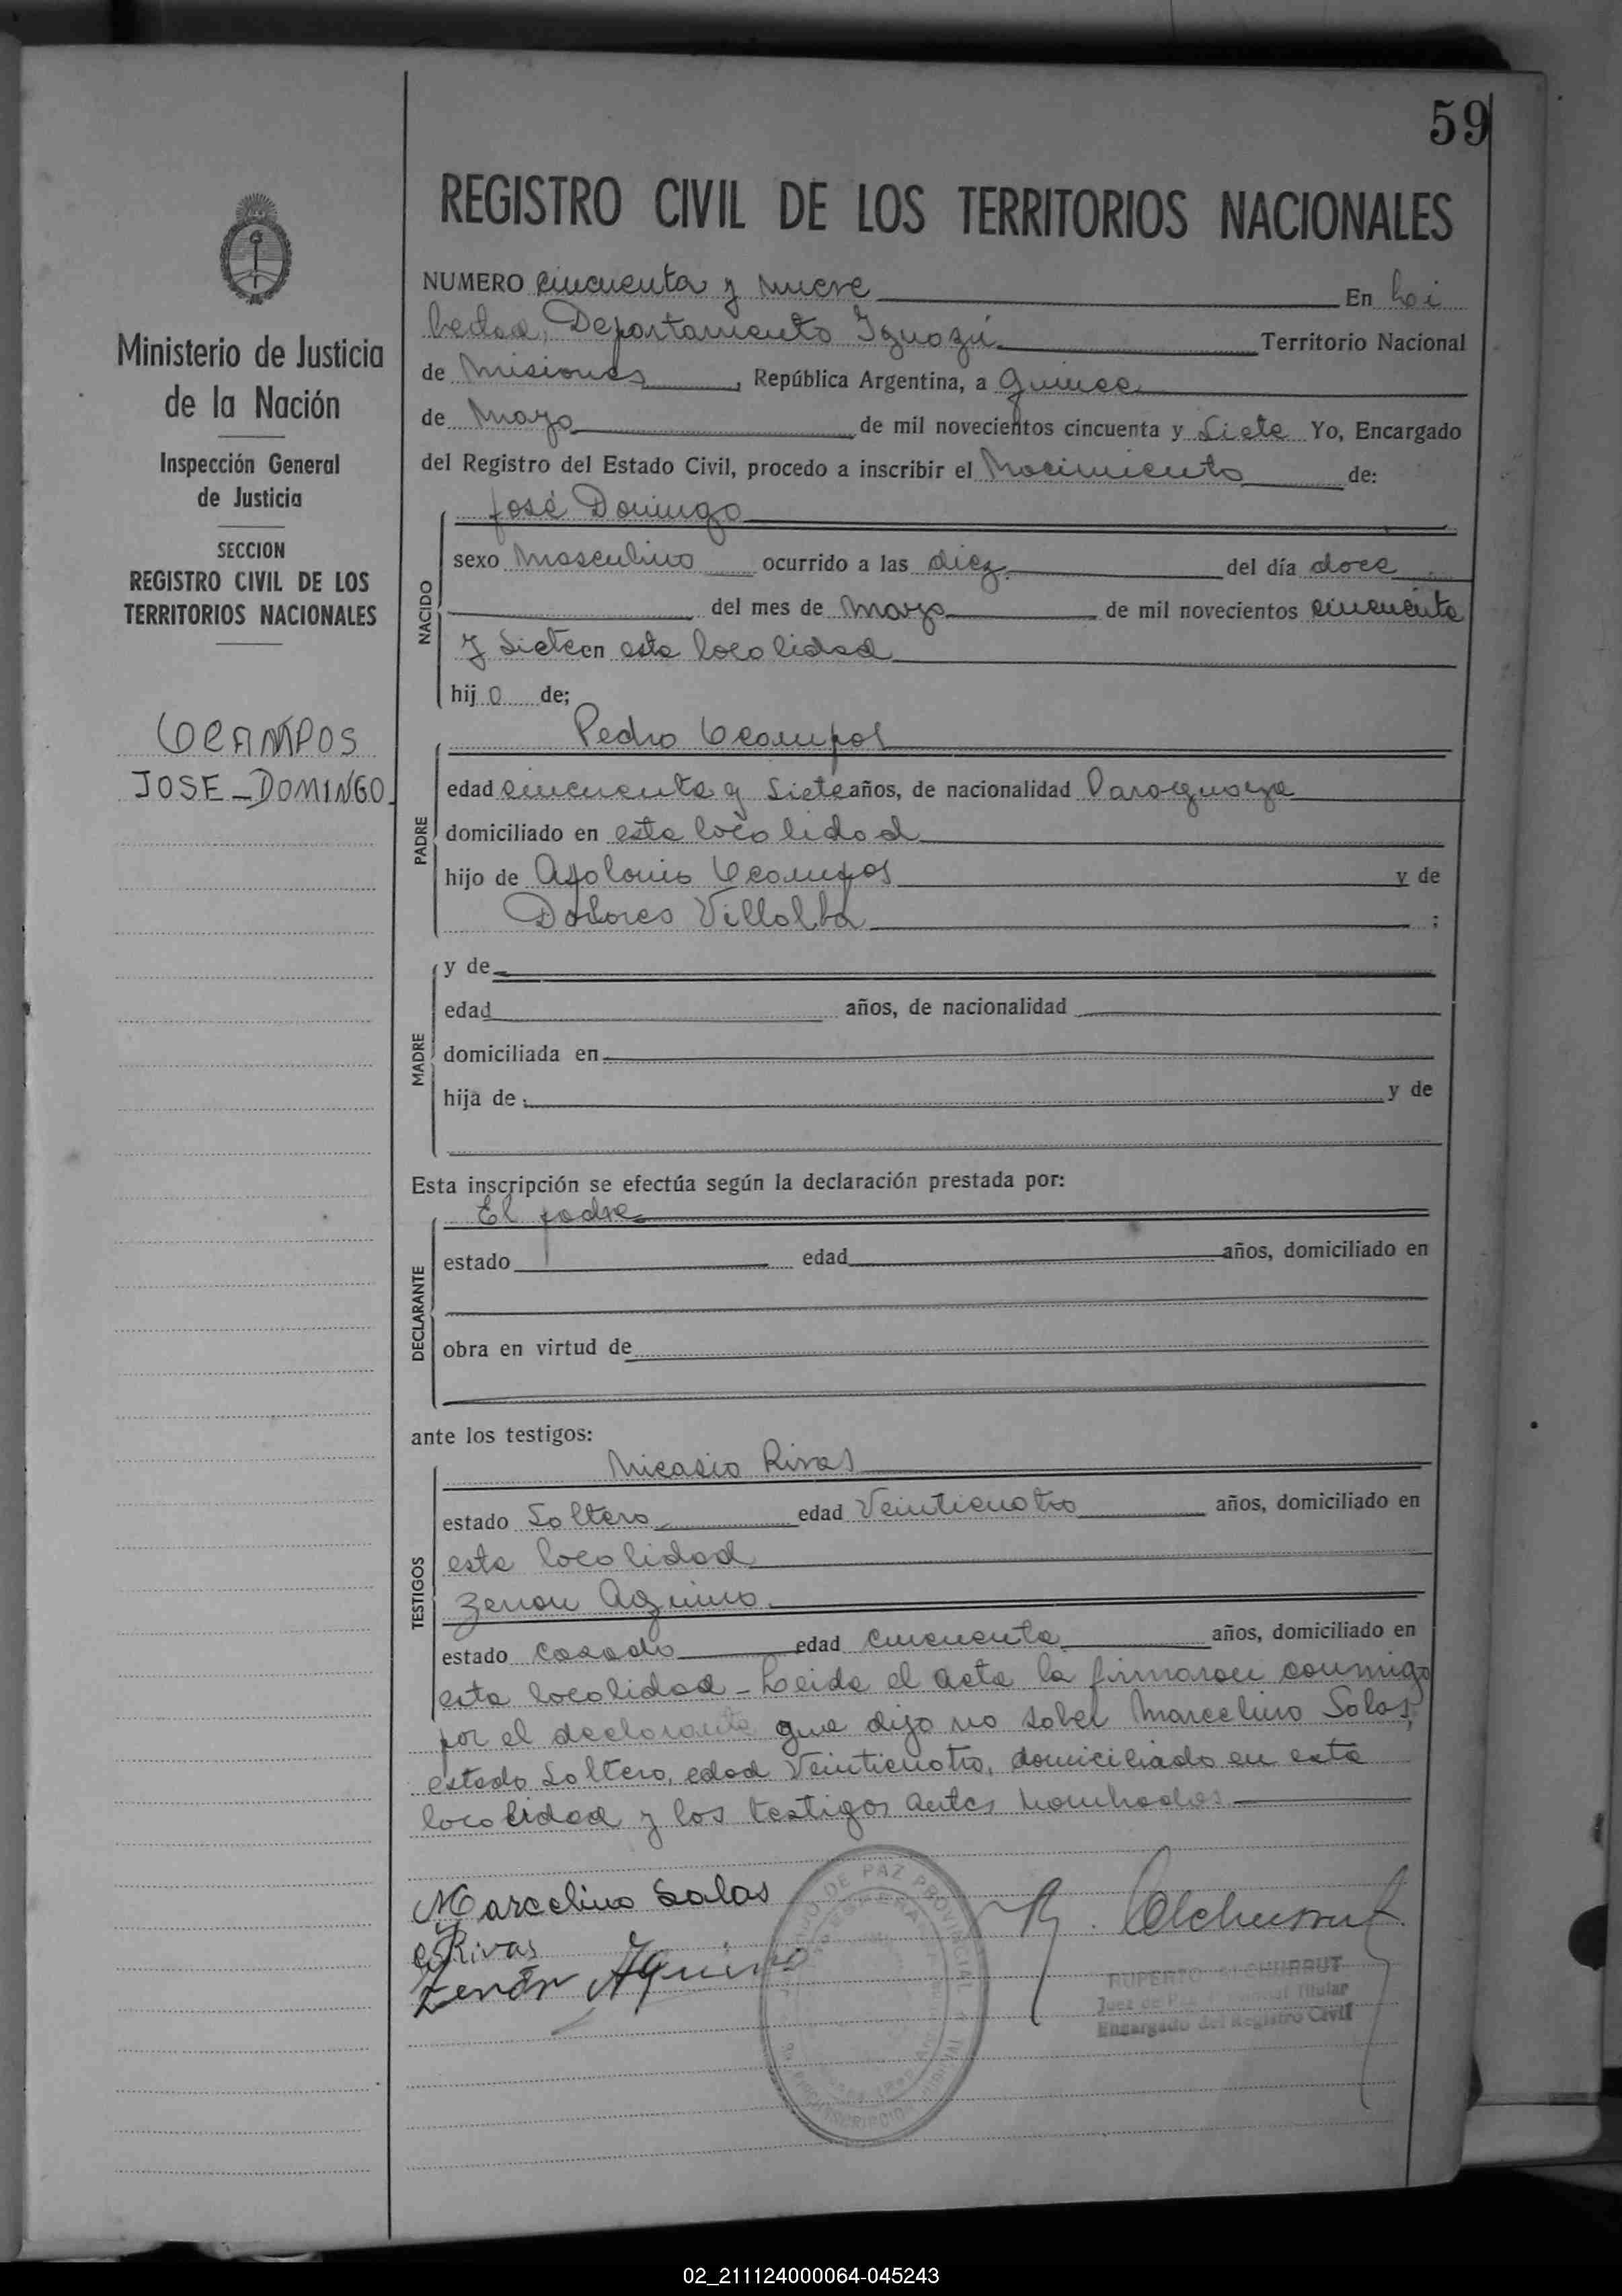 59
REGISTRO CIVIL DE LOS TERRITORIOS NACIONALES
Ministerio de Justicia
de la Nación
Inspección General
de Justicia
SECCION
REGISTRO CIVIL DE LOS
TERRITORIOS NACIONALES
OCAMPOS
JOSE-DOMINGO
NUMERO cincuenta y nueve En
Departamento Iguazú Territorio Nacional
de Misiones, República Argentina, a quince
de Mayo de mil novecientos cincuenta y Siete Yo, Encargado
del Registro del Estado Civil, procedo a inscribir el Nacimiento de:
NACIDO
José Domingo
sexo Masculino ocurrido a las diez del día doce
del mes de Marzo de mil novecientos cincuenta
y Siete en esta localidad
hijo de;
PADRE
Pedro Ocampos
edad cincuenta y Siete años, de nacionalidad Paraguaya
domiciliado en esta localidad
hijo de Apolonio Ocampos y de
Dolores Villalba ;
MADRE
y de
edad años, de nacionalidad
domiciliada en
hija de y de
Esta inscripción se efectúa según la declaración prestada por:
DECLARANTE
El padre
estado edad años, domiciliado en
obra en virtud de
ante los testigos:
TESTIGOS
Nicasio Rivas
estado Soltero edad Veinticuatro años, domiciliado en
esta localidad
Zenon Aquino
estado Casado edad Cincuenta años, domiciliado en
esta localidad - Leida el acta la firmaron conmigo
por el declarante que dijo no saber Marcelino Salas,
estado Soltero, edad Veinticuatro, domiciliado en esta
localidad y los testigos antes nombrados
Marcelino Salas
Rivas
Zenón Aquino
DE PAZ PROVINCIAL
RUPERTO
Juez de Titular
Encargado del Registro Civil
02_211124000064-045243